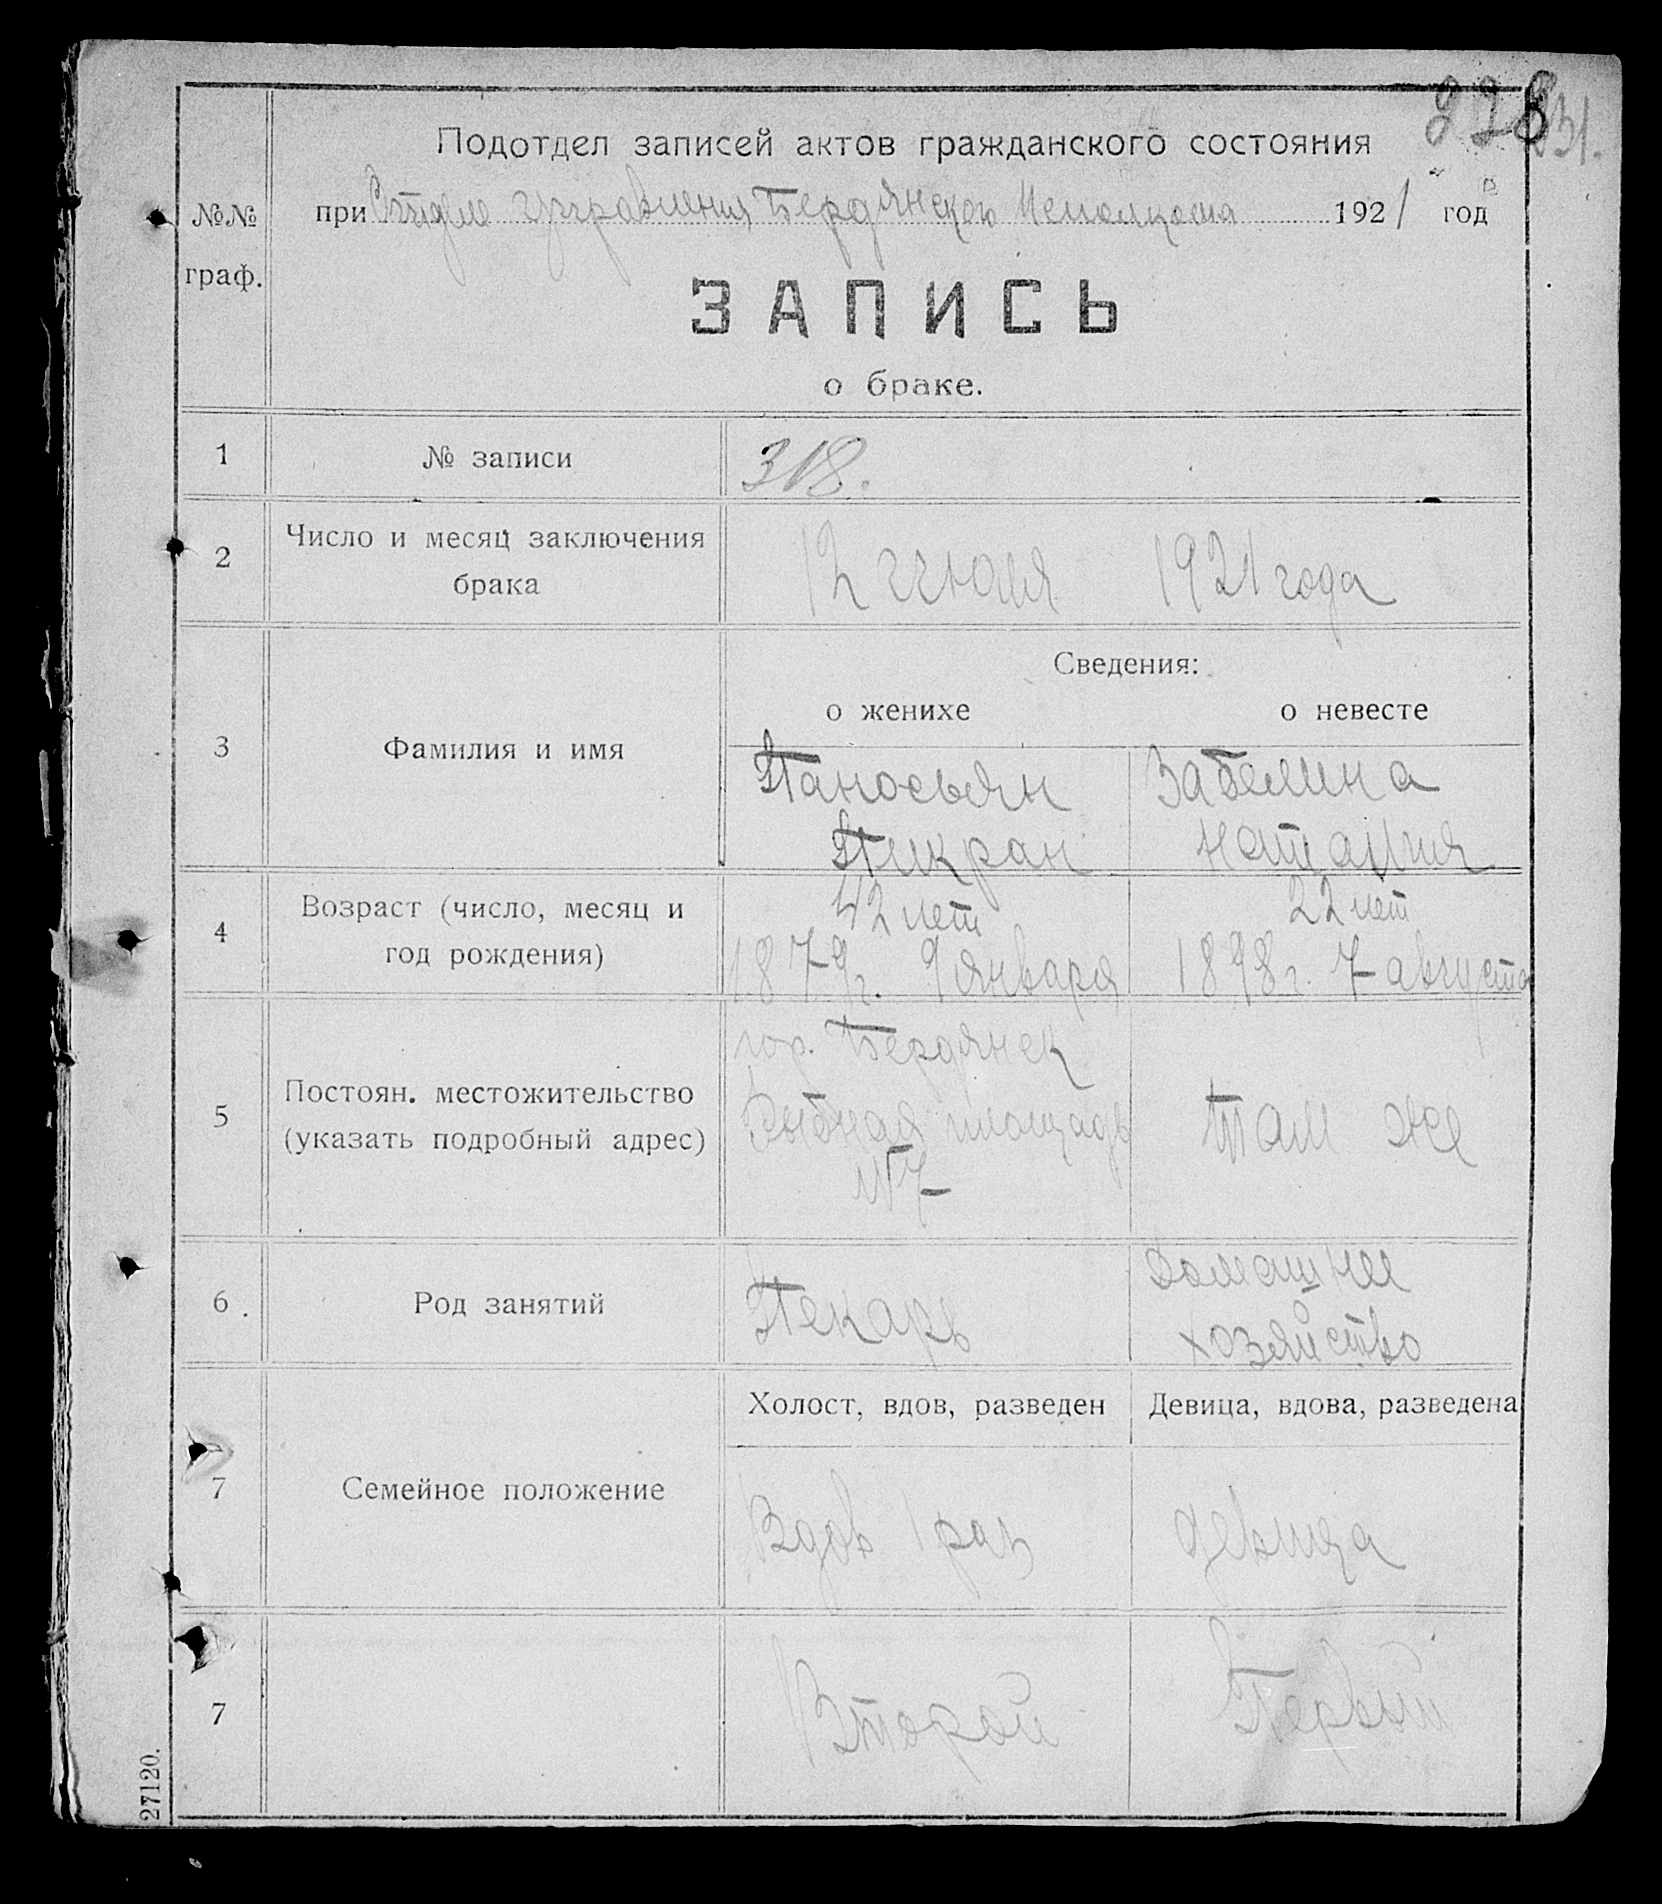 228
231.
Подотдел записей актов гражданского состояния
при Отделе Управления Бердянского Исполкома 1921 год
№№ граф.
ЗАПИСЬ
о браке.
1 № записи 318.
2 Число и месяц заключения брака 12 июля 1921 года
Сведения:
о женихе о невесте
3 Фамилия и имя
Паносьян Забелина
Тикран Наталия
4 Возраст (число, месяц и год рождения)
42 лет 22 лет
1879 г. 9 января 1898 г. 7 августа
5 Постоян. местожительство (указать подробный адрес)
гор. Бердянск
Рыбная площадь там же
№7
6 Род занятий
Пекарь домашнее
хозяйство
Холост, вдов, разведен Девица, вдова, разведена
7 Семейное положение
Вдов 1 раз девица
7 Второй Первый
27120.